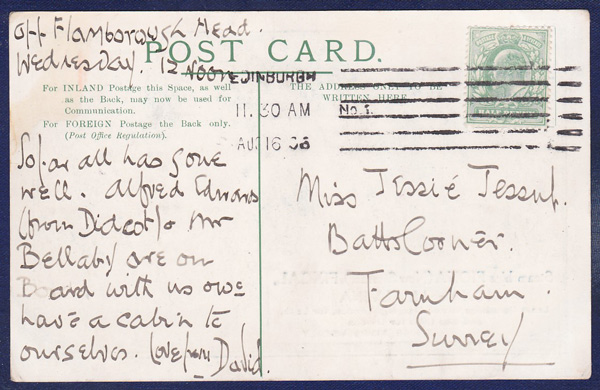 Off Flamborough Head.
Wednesday. 12 Noon
POST CARD.
For INLAND Postage this Space, as well
as the Back, may now be used for
Communication.
For FOREIGN Postage the Back only.
(Post Office Regulation).
THE ADDRESS ONLY TO BE
WRITTEN HERE
EDINBURGH
11.30 AM
No.1.
AUG 16
So far all has gone
well. Alfred Edwards
(from Didcot) & Mr
Bellaby are on
Board with us owe
have a cabin to
ourselves. Love from David.
Miss Jessie Jessup.
Batts Corner.
Farnham.
Surrey